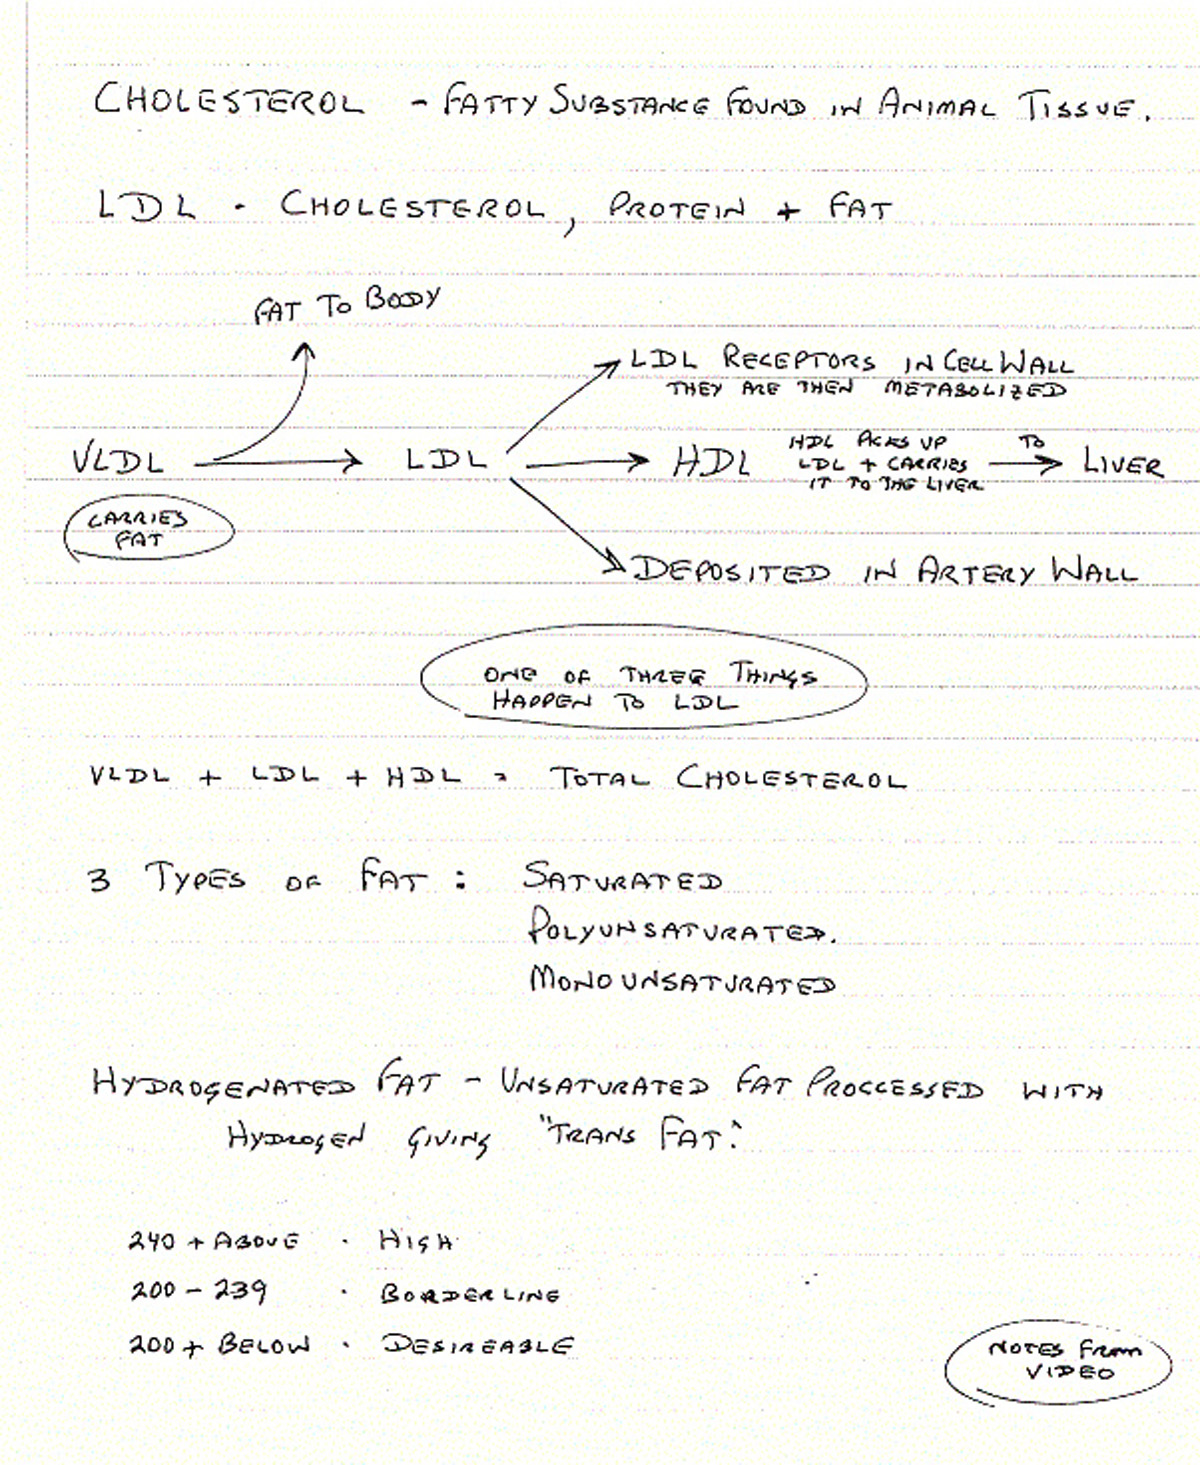 CHOLESTEROL - FATTY SUBSTANCE FOUND IN ANIMAL TISSUE.
LDL - CHOLESTEROL, PROTEIN + FAT
FAT TO BODY
LDL RECEPTORS IN CELL WALL
THEY ARE THEN METABOLIZED
VLDL → LDL → HDL HDL PICKS UP TO → LIVER
LDL + CARRIES
IT TO THE LIVER
CARRIES
FAT
DEPOSITED IN ARTERY WALL
ONE OF THREE THINGS
HAPPEN TO LDL
VLDL + LDL + HDL = TOTAL CHOLESTEROL
3 TYPES OF FAT : SATURATED
POLYUNSATURATED.
MONOUNSATURATED
HYDROGENATED FAT - UNSATURATED FAT PROCCESSED WITH
HYDROGEN GIVING "TRANS FAT."
240 + ABOVE - HIGH
200 - 239 - BORDERLINE
200 + BELOW - DESIREABLE
NOTES FROM
VIDEO